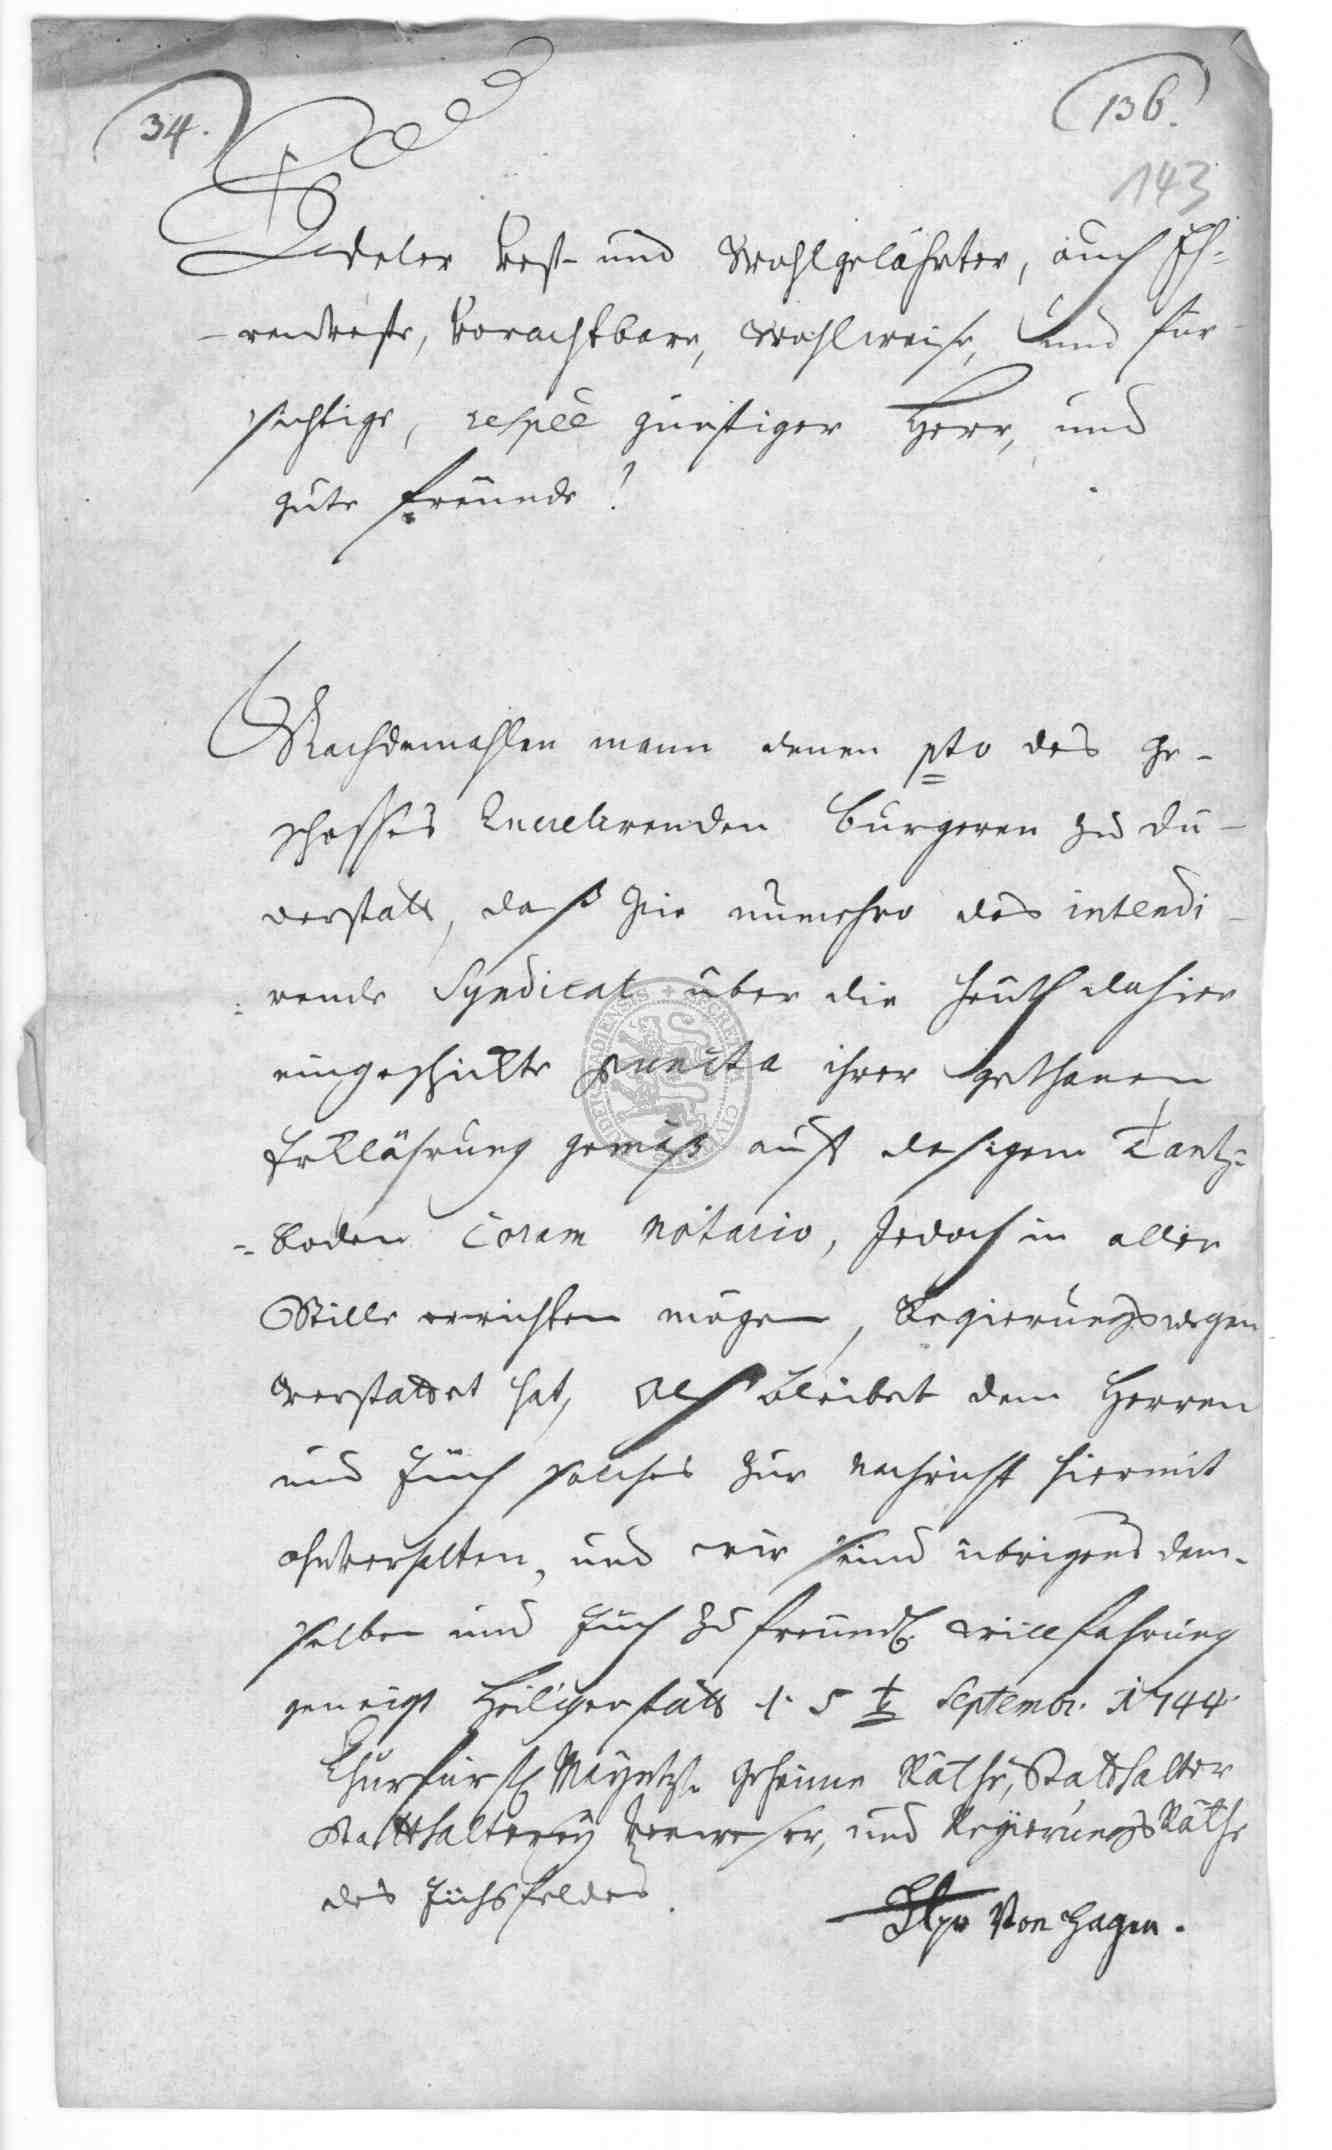 34.
136.
143
Edeler Vest- und Wohlgelährter, auch Eh-
-renveste, Vorachtbare, Wohlweise, und für-
sichtige, respee günstiger Herr, und
gute freunde!
Nachdemahlen mann denen pto des ge-
schosses Querelirenden burgeren zu Du-
derstatt, daß Sie nunmehro das intendi-
rende Syndicat über die heuth dahier
eingeschickte puncta ihrer gethanen
Erklährung gemäß auff dasigem Tantz-
-boden Coram notario, Jedoch in aller
Stille errichten mögen, Regierungs wegen
verstattet hat, Alß bleibet dem Herren
und Euch solches zur nachricht hiermit
ohnverhalten, und wir seind übrigens dem-
selben und Euch zu freundl. willfahrung
geneigt Heiligenstatt d. 5t Septembr. 1744
Churfürstl. Mayntz. geheime Räthe, Statthalter
Statthalterey Verweser, und Regierungs Räthe
des Eichsfeldes.
von Hagen.